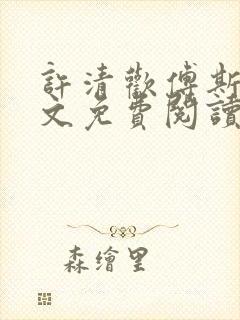 許清歡傅斯
文免費閱讀
森繪里